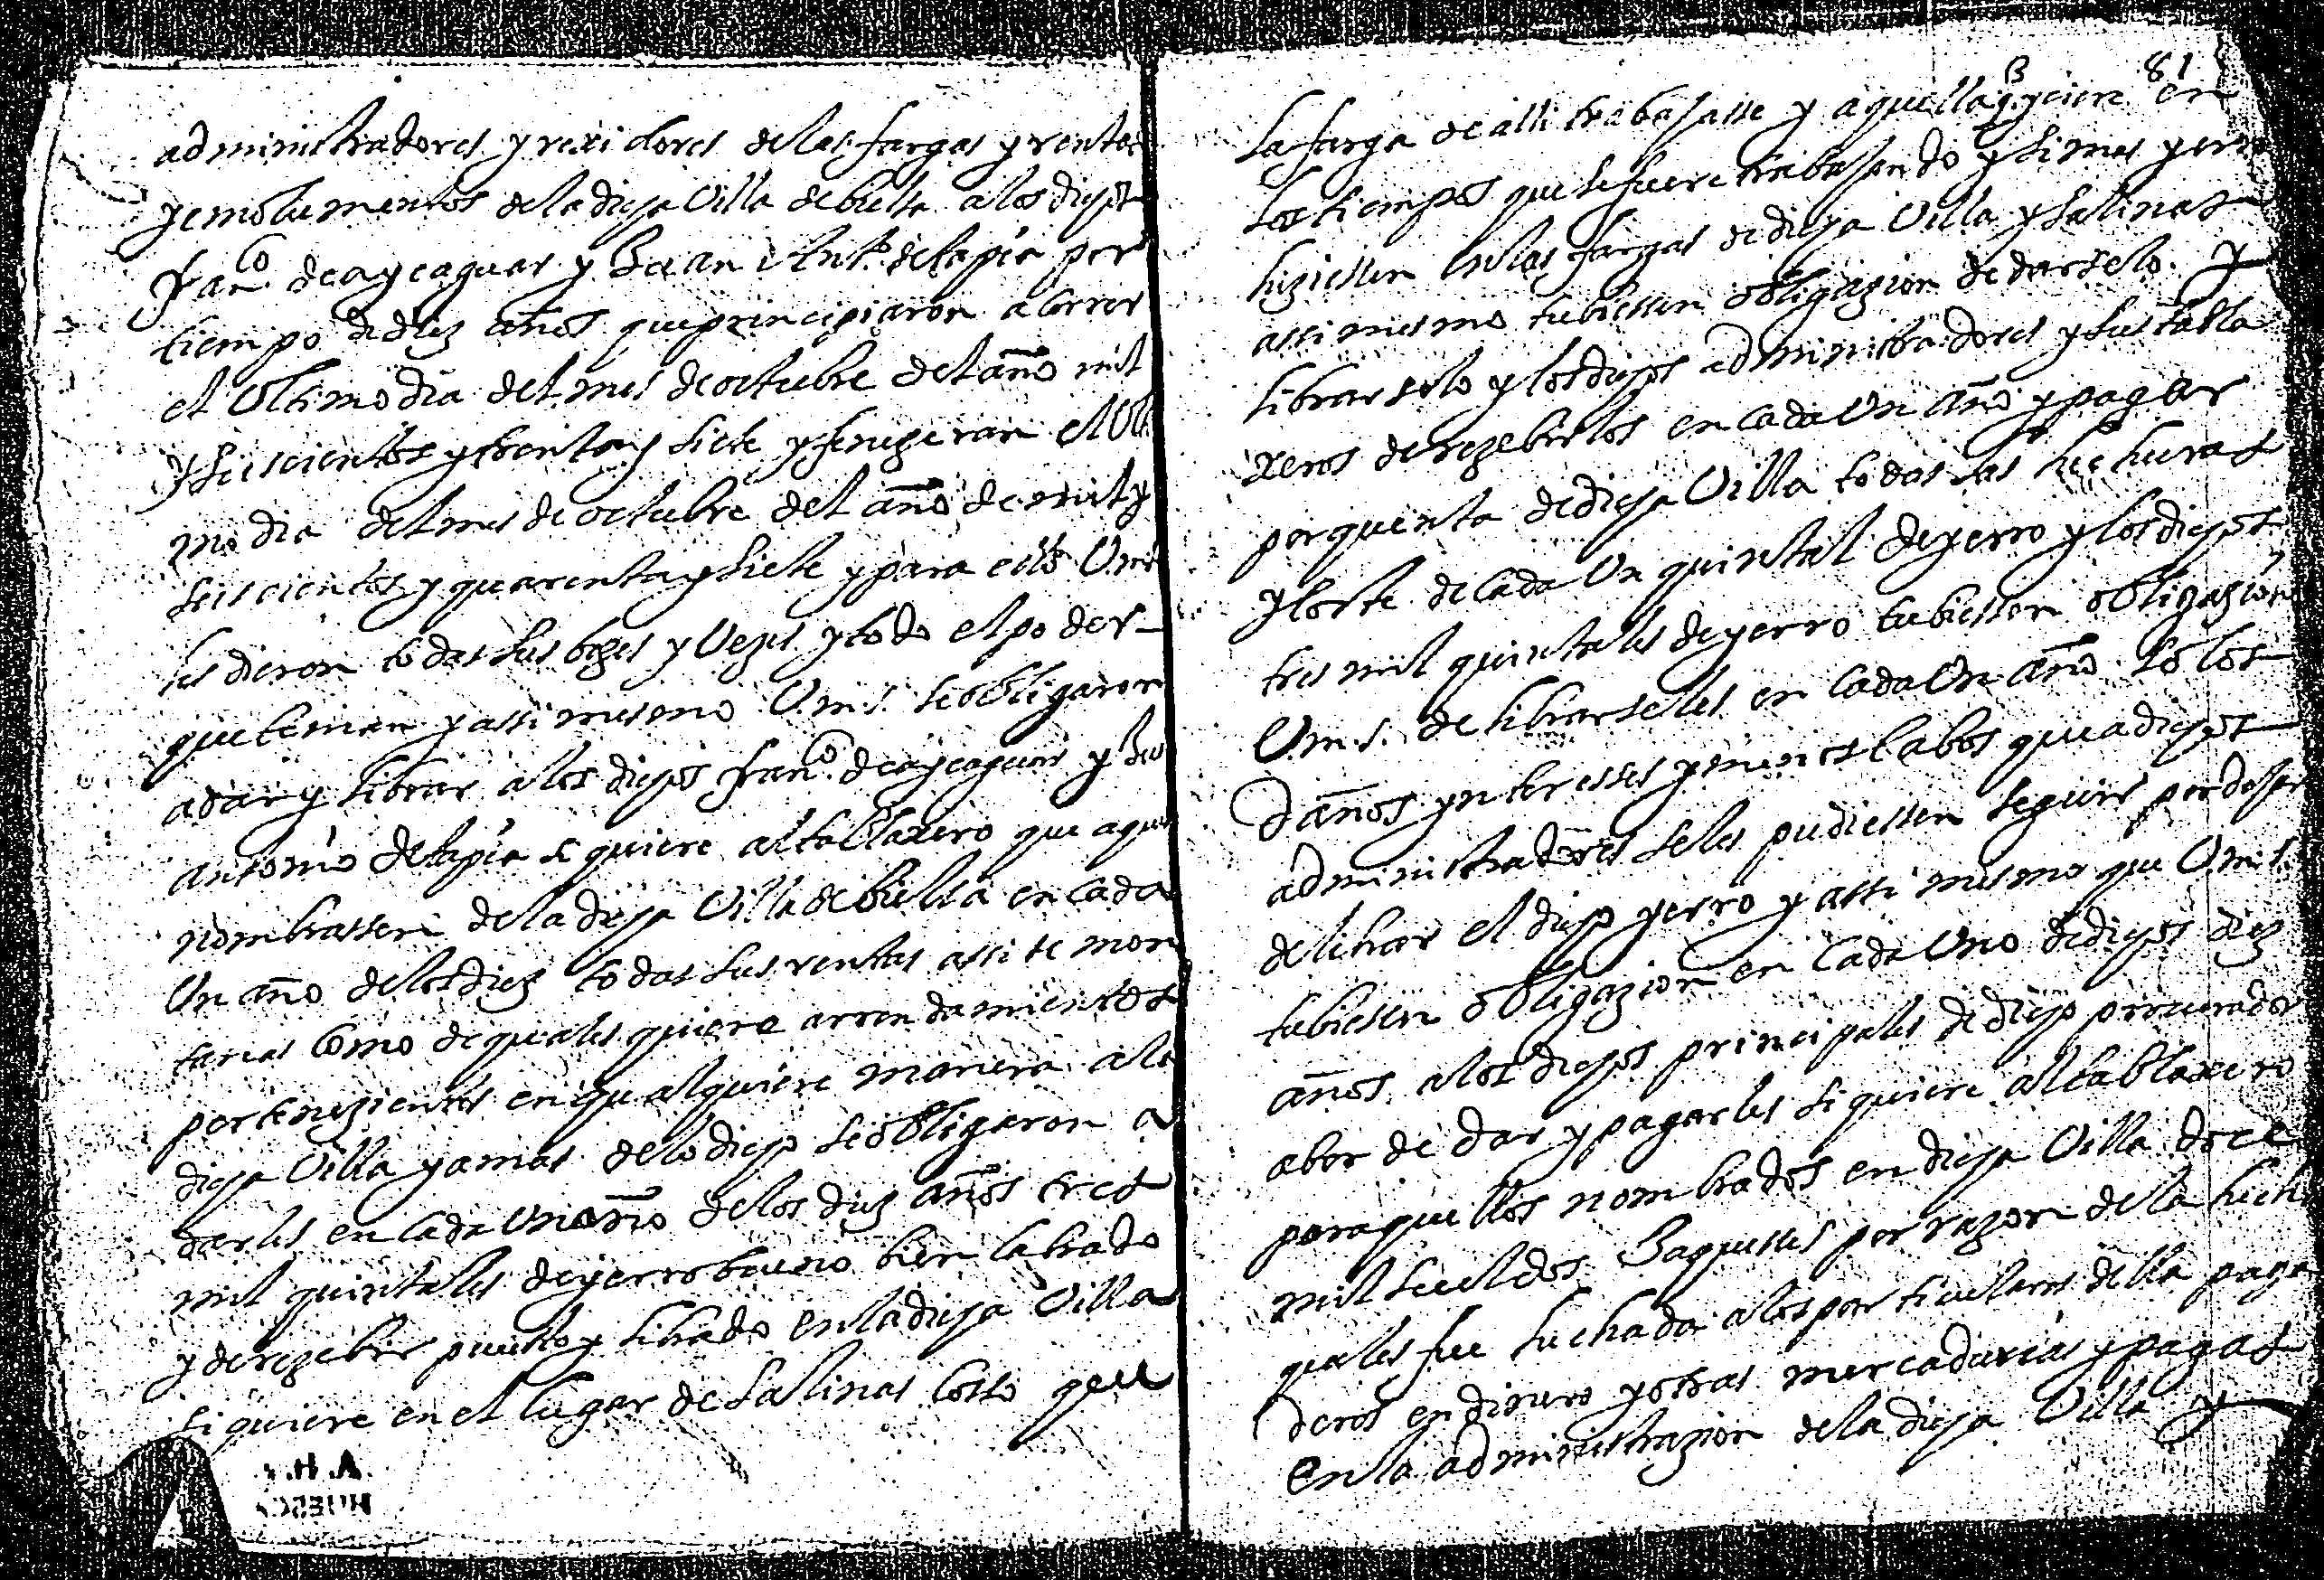 administradores y rexidores de las fargas y rentas
y emolumentos de la dicha Villa de bielsa a los dichos
Franco de ayeaguas y Juan Anto de tapia por
tiempo de diez años que principiaron a correr
el Ultimo dia del mes de octubre del año mil
y seiscientos y trenta y siete y fenezeran el Ulti
mo dia del mes de octubre del año de mil y
seiscientos y quarenta y siete y para ello Vms
les dieron todas sus bozes y Vezes y todo el poder
que tenian y assi mesmo Vm.s. se obligaron
a dar y librar a los dichos Franco de ayeaguas y Juan
antonio de tapia si quiere al tablaxero que aquellos
nombrassen de la dicha Villa de bielsa en cada
Un año de los diez todas sus rentas assi de mon
tañas como de quales quiere arrendamientos
pertenezientes en qualquiere manera a la
dicha Villa y a mas de lo dicho se obligaron a
darles en cada Un año de los diez años tres
mil quintales de yerro bueno bien labrado
y de rezebir puesto y librado en la dicha Villa
si quiere en el lugar de Salinas losso que
81
la farga de alli trabajasse y aquella hiziere en
los tiempos que se fuere trabajando y si mas yerro
hiziessen en las fargas de dicha Villa y Salinas
assi mesmo tubiessen obligazion de darselo y
librarselo y los dichos administradores y sus tabla
xeros de rezebirlos en cada Un año y pagar
por quenta de dicha Villa todas las hechuras
y coste de cada Un quintal de yerro y los dichos
tres mil quintales de yerro tubiessen obligazion
Vm.s. de librarseles en cada Un año so los
Daños ynteresses y menoscabos que a dichos
administradores se les pudiessen seguir por dejar
de librar el dicho yerro y assi mesmo que Vm.s.
tubiessen obligazion en cada Uno de dichos diez
años a los dichos principales de dicho procurador
abor de dar y pagarles si quiere al tablaxero
por aquellos nombrados en dicha Villa doce
mil sueldos Jaqueses por razon de la hecha
quales fue hechada a los particulares della paga
deros en dinero y otras mercadurias y pagas
en la administrazion de la dicha Villa y
A.H.
HUESCA